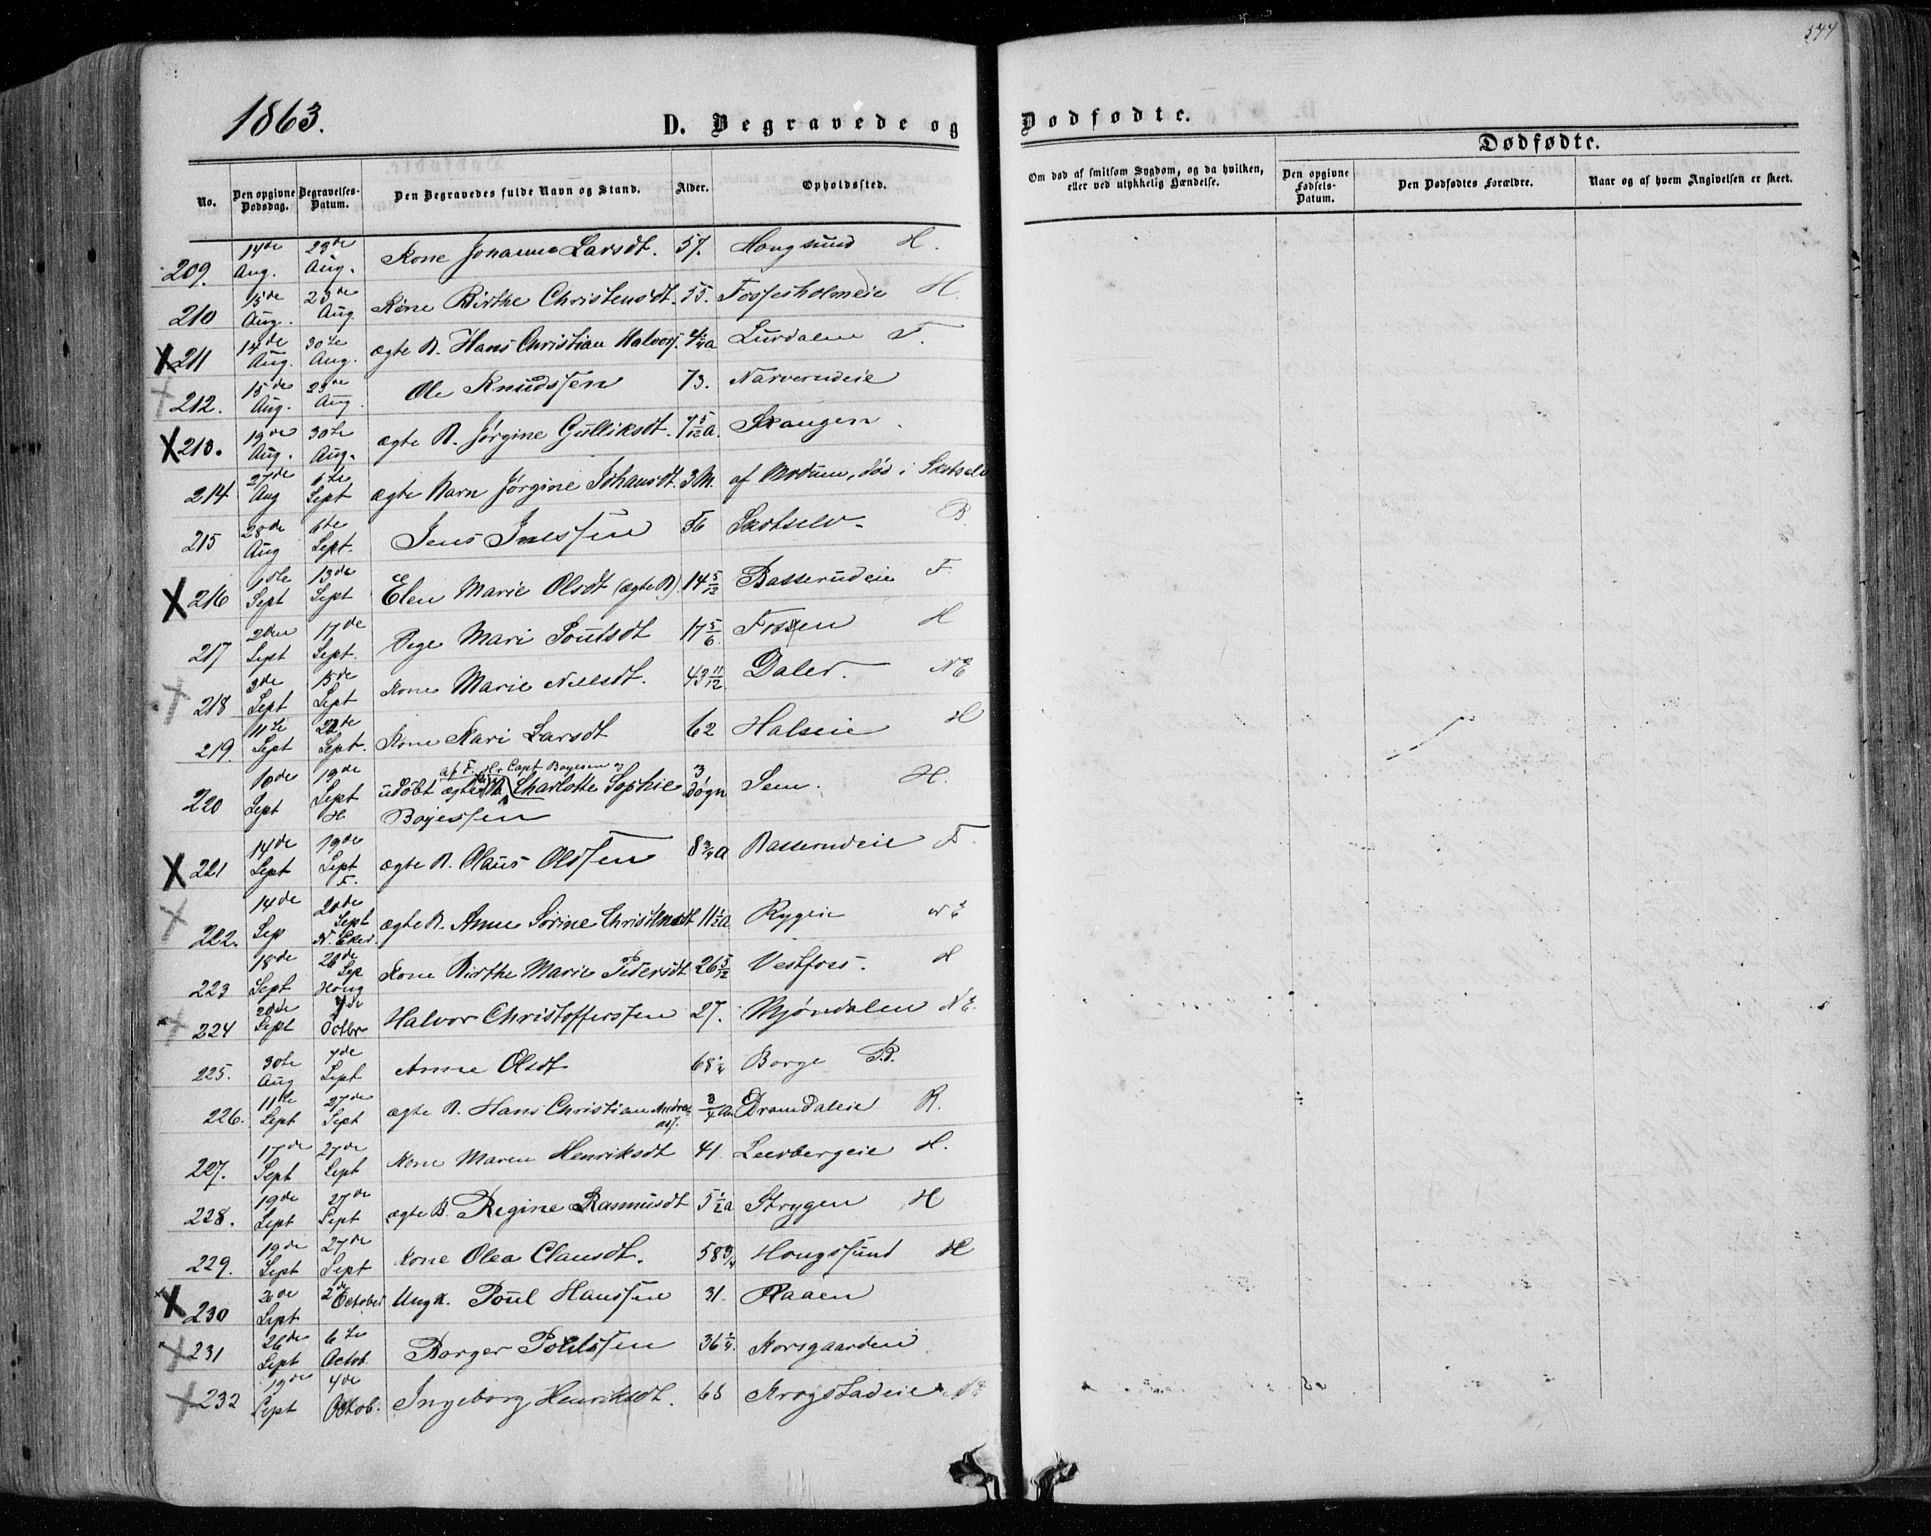 544
1863.
D. Begravede og Dødfødte.
Dødfødte.
No. Den opgivne Dødsdag. Begravelses-Datum. Den Begravedes fulde Navn og Stand. Alder. Opholdssted.
Om død af smitsom Sygdom, og da hvilken, eller ved ulykkelig Hændelse. Den opgivne Fødsels-Datum. Den Dødfødtes Forældre. Naar og af hvem Angivelsen er skeet.
209. 14de Aug. 23de Aug. Kone Johanne Larsdt. 57. Hougsund H.
210 15de Aug. 23de Aug Kone Birthe Christensdt. 55. Fossesholmeie H.
X 211 14de Aug. 30te Aug. ægte B. Hans Christian Halvors. 4 1/4 a Lurdalen F.
X 212. 15de Aug. 23de Aug Ole Knudssen 73. Narverudeie
X 213. 19de Aug. 30te Aug. ægte B. Jørgine Gulliksdt. 7 5/12 a. Skaugen
214 27de Aug 6te Sept ægte Barn Jørgine Johansdt. 3 M. af Modum, død i Skotselv
215 28de Aug 6te Sept. Jens Jnessen 56 Skotselv. B
X 216 1ste Sept 13de Sept Elen Marie Olsdt (ægte B) 14 5/12 Basserudeie F.
217 2den Sept 17de Sept. Pige Mari Poulsdt 17 5/6 Fossen H
X 218 3de Sept 15de Sept Kone Marie Nielsdt. 43 11/12 Daler. N E
219. 11te Sept 22de Sept. Kone Kari Larsdt 62 Halseie H
220 10de Sept 19de Sept H udøbt ægte B. af F. Hr Capt Boyesen og Charlotte Sophie Boyessen 3 Døgn Sem. H.
X 221 14de Sept 19de Sept F. ægte B. Olaus Olssen 8 3/4 a Basserudeie F.
X 222. 14de Sep 20de Sept N. Eker. ægte B. Anne Sørine Christensdt 11 1/2 a Rygeie N E
223 18de Sept 26de Sep Houg Kone Birthe Marie Pedersdt 26 5/12 Vestfos. H
X 224 20de Sept 7de Octbr Halvor Christofferssen 27. Mjøndalen N E.
225. 30te Aug 7de Sept Anne Olsdt 68 1/4 Borge B.
226. 11te Sept 27de Sept ægte B. Hans Christian Andreass. 3/4 a. Dramdaleie B.
227. 17de Sept 27de Sept Kone Maren Henriksdt 41 Leerbergeie H.
228. 19de Sept 27de Sept ægte B. Regine Rasmusdt 5 1/2 a Strygen H
229. 19de Sept 27de Sept Kone Olea Clausdt. 58 3/4 Hougssund H
X 230 20de Sept 2de October Ungk. Poul Hanssen 31. Raaen
X 231 26de Sept 6te Octob. Borger Poulssen 36 1/4. Korsgaarden
X 232 19de Sept 4de Octob. Ingeborg Henriksdt. 65 Krogstadeie N E